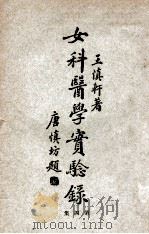 王慎軒著
女科醫學實驗錄
唐慎坊題
集